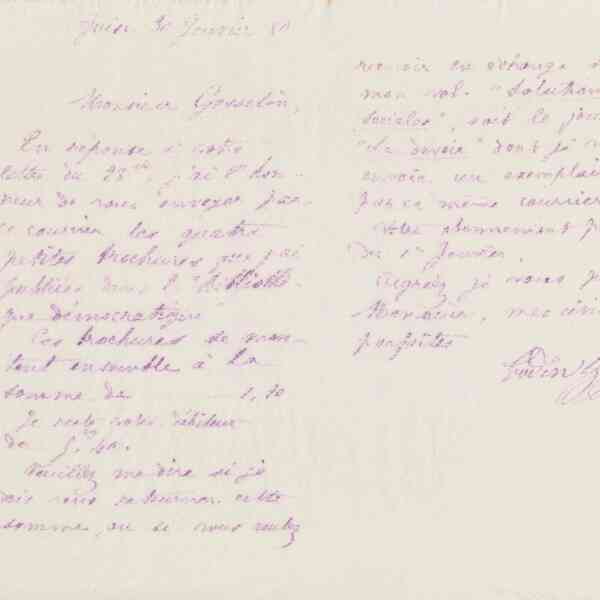 Guise 30 Janvier 80
Monsieur Gosselin,
En réponse à votre
lettre du 23 ct, j'ai l'hon-
neur de vous envoyer par
ce courrier les quatre
petites brochures que j'ai
publiées dans la "Bibliothè-
que démocratique"
Ces brochures se mon-
tent ensemble à la
somme de 1,40
Je reste votre débiteur
de
Veuillez me dire si je
dois vous retourner cette
somme, ou si vous voulez
recevoir en échange
mon vol. "Solutions
sociales", soit le jour
"Le devoir" dont je
envoie un exemplai
par ce même courrier
Votre abonnement
du 1er Janvier.
Agréez, je vous p
Monsieur, mes civi
parfaites
Godin